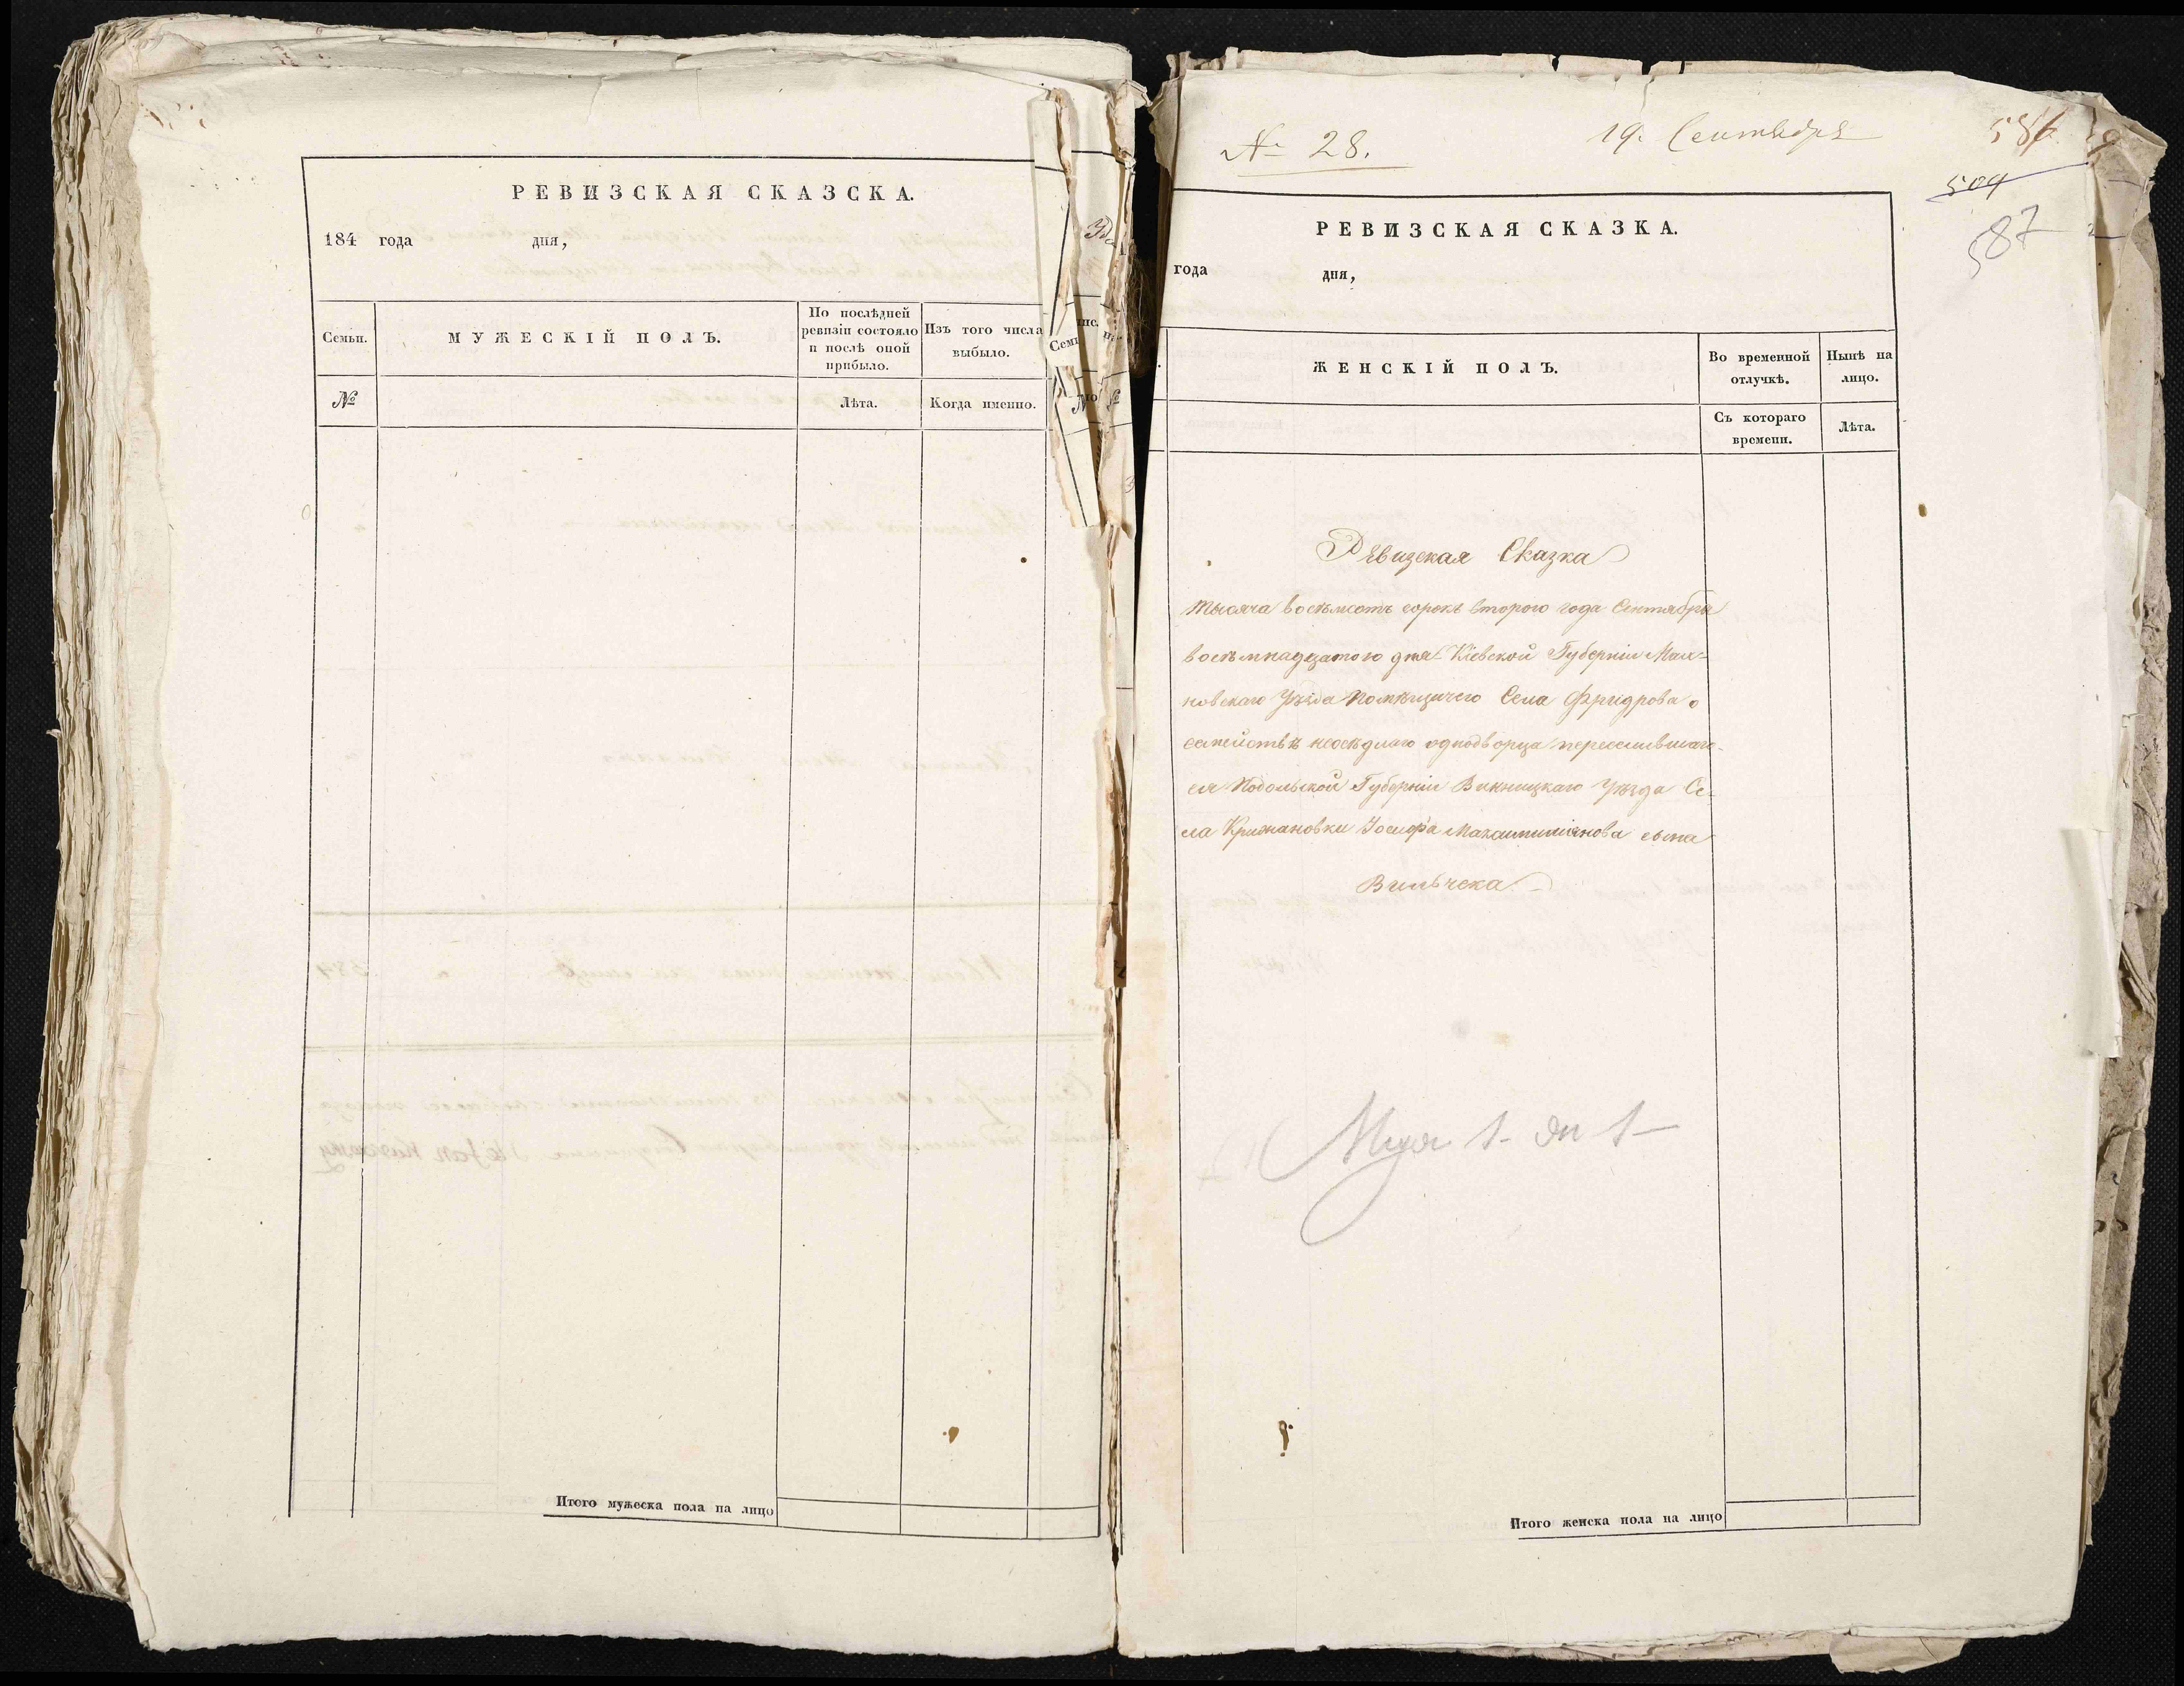 РЕВИЗСКАЯ СКАЗСКА.
184 года дня,
Семьи.
МУЖЕСКІЙ ПОЛЪ.
По послѣдней
ревизіи состояло
и послѣ оной
прибыло.
Изъ того числа
выбыло.
№
Лѣта.
Когда именно.
Итого мужеска пола на лицо
№ 28.
19. Сентября
586
509
587
РЕВИЗСКАЯ СКАЗКА.
года дня,
ЖЕНСКІЙ ПОЛЪ.
Во временной
отлучкѣ.
Нынѣ на
лицо.
Съ котораго
времени.
Лѣта.
Ревизская Сказка
тысяча восѣмсотъ сорокъ второго года Сентября
восѣмнадцатого дня Кіевской Губерніи Мах-
новскаго Уѣзда помѣщичего Села Фридрова о
семействѣ неосѣдлаго однодворца переселившаго-
ся Подольской Губерніи Винницкаго Уѣзда Се-
ла Крижановки Іосифа Махсимиліянова сына
Вильчека
Итого женска пола на лицо